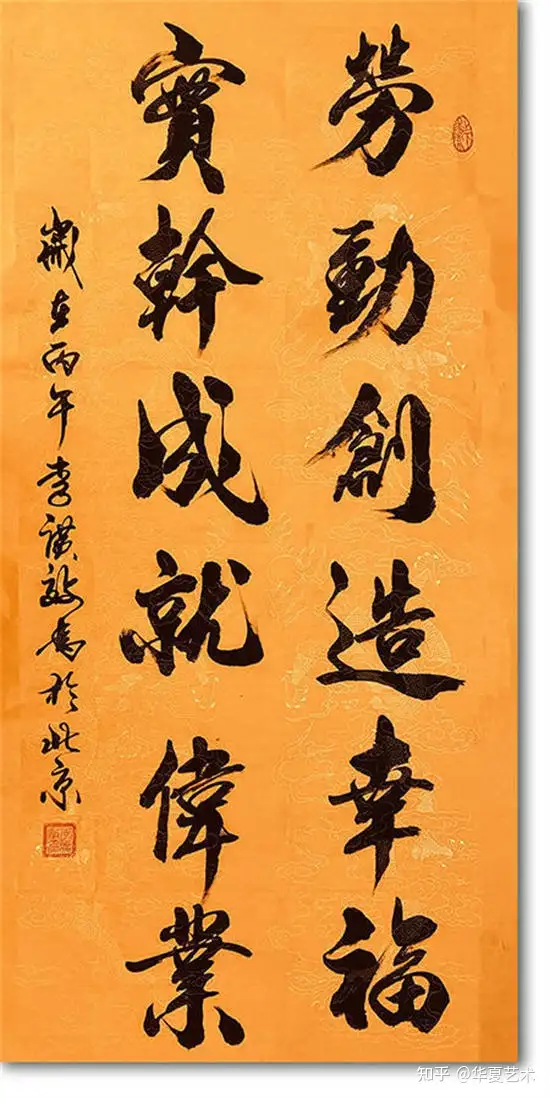 勞動創造幸福
實幹成就偉業
歲在丙午李書於北京
知乎 @华夏艺术